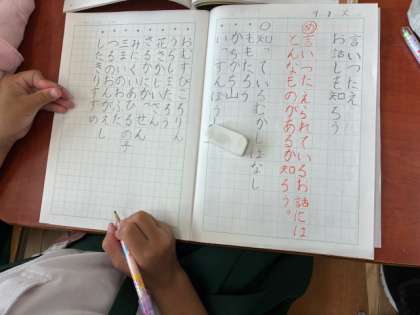 言いつたえ
お話しを知ろう
め 言いつたえられているお話には
どんなものがあるか知ろう。
◎知っているむかしばなし
・ももたろう
・かちかち山
・いっすんぼうし
・おむすびころりん
・うらしまたろう
・花さかじいさん
・さるかにがっせん
・みにくいあひるの子
・三まいのおふだ
・つるのおんがえし
・したきりすずめ